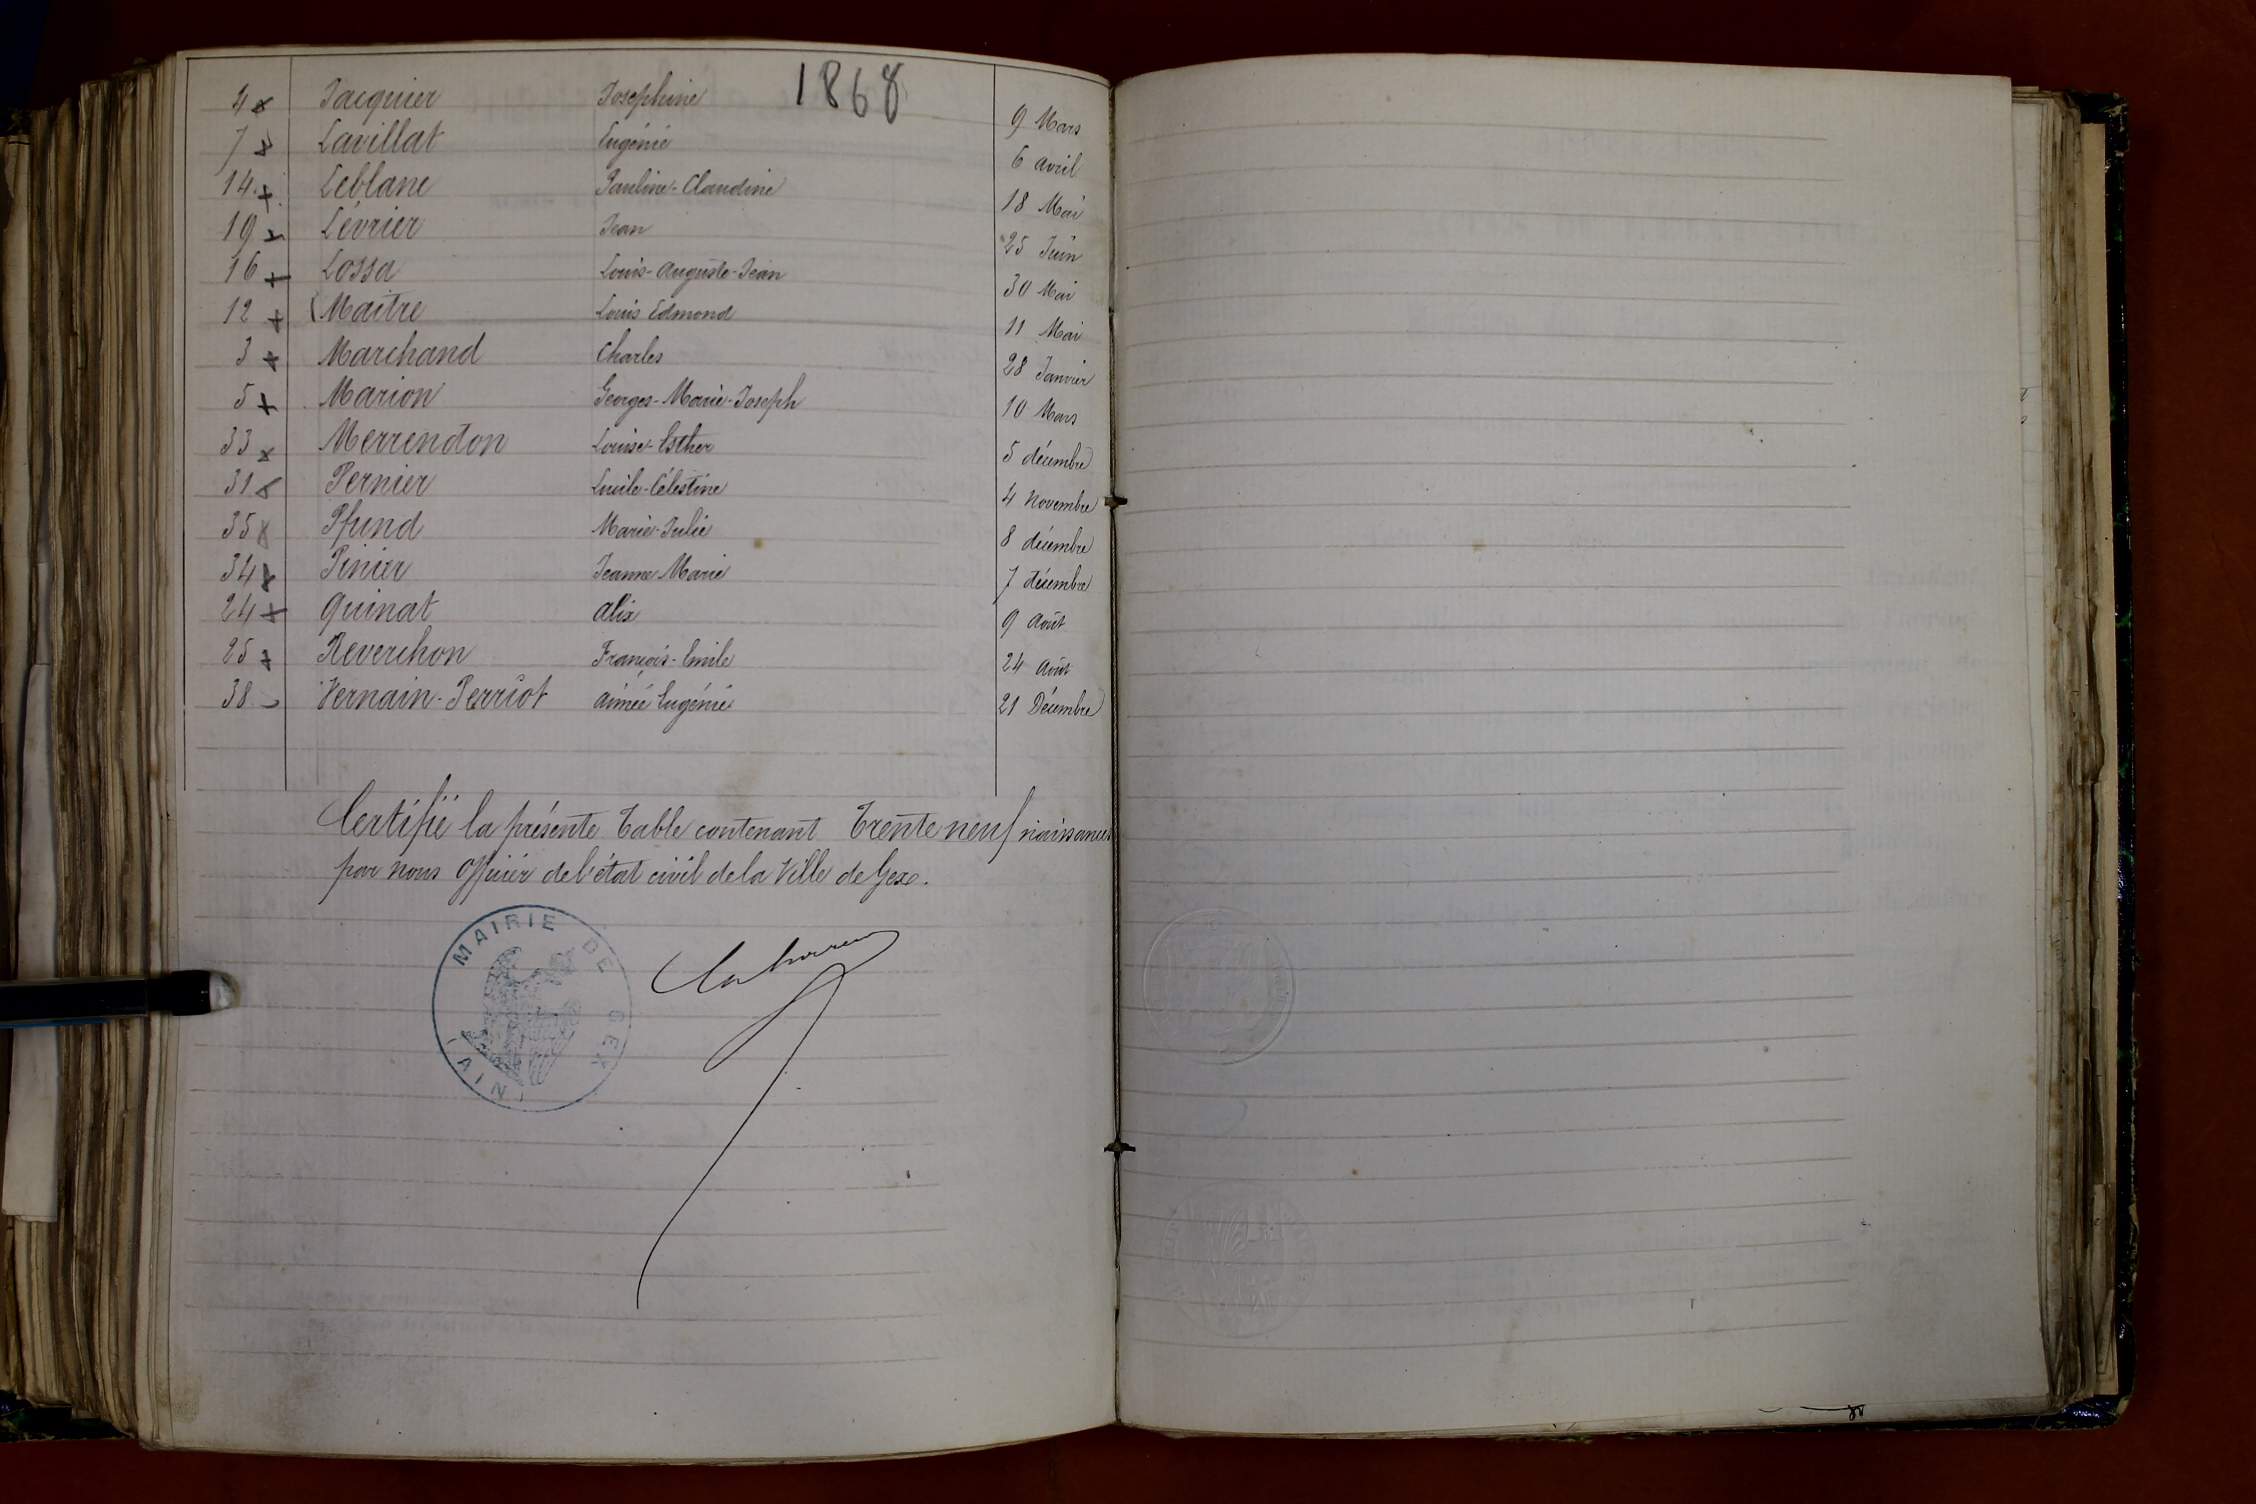 1868
4 Jacquier Josephine 9 Mars
7 Lavillat Eugénie 6 avril
14 Leblanc Pauline-Claudine 18 Mai
19 Lévrier Jean 25 Juin
16 Lossa Louis-Auguste-Jean 30 Mai
12 Maitre Louis Edmond 11 Mai
3 Marchand Charles 28 Janvier
5 Marion Georges-Marie-Joseph 10 Mars
33 Merrendon Louise-Esther 5 décembre
31 Pernier Lucile-Célestine 4 Novembre
35 Pfund Marie-Julie 8 décembre
34 Pinier Jeanne Marie 7 décembre
24 Quinat Alix 9 Août
25 Reverchon François-Emile 24 Août
38 Vernain-Perriot aimée Eugénie 21 Décembre
Certifié la présente Table contenant Trente neuf naissances
par nous Officier de l'état civil de la Ville de Gex.
MAIRIE DE GEX
(AIN)